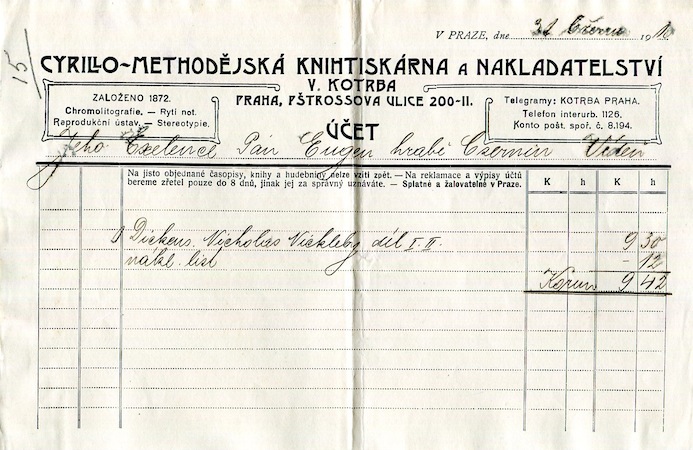 15
V PRAZE, dne 31 Června 191
CYRILLO-METHODĚJSKÁ KNIHTISKÁRNA A NAKLADATELSTVÍ
V. KOTRBA
PRAHA, PŠTROSSOVA ULICE 200-II.
ZALOŽENO 1872.
Chromolitografie. — Rytí not.
Reprodukční ústav. — Stereotypie.
Telegramy: KOTRBA PRAHA.
Telefon interurb. 1126.
Konto pošt. spoř. č. 8.194.
ÚČET
Jeho Excelence Pán Eugen hrabě Czernin Vídeň
Na jisto objednané časopisy, knihy a hudebniny nelze vzíti zpět. — Na reklamace a výpisy účtů
bereme zřetel pouze do 8 dnů, jinak jej za správný uznáváte. — Splatné a žalovatelné v Praze.
K h K h
1 Dickens, Nicholas Nickleby díl I II. 9 30
nákl. list - 12
Korun 9 42